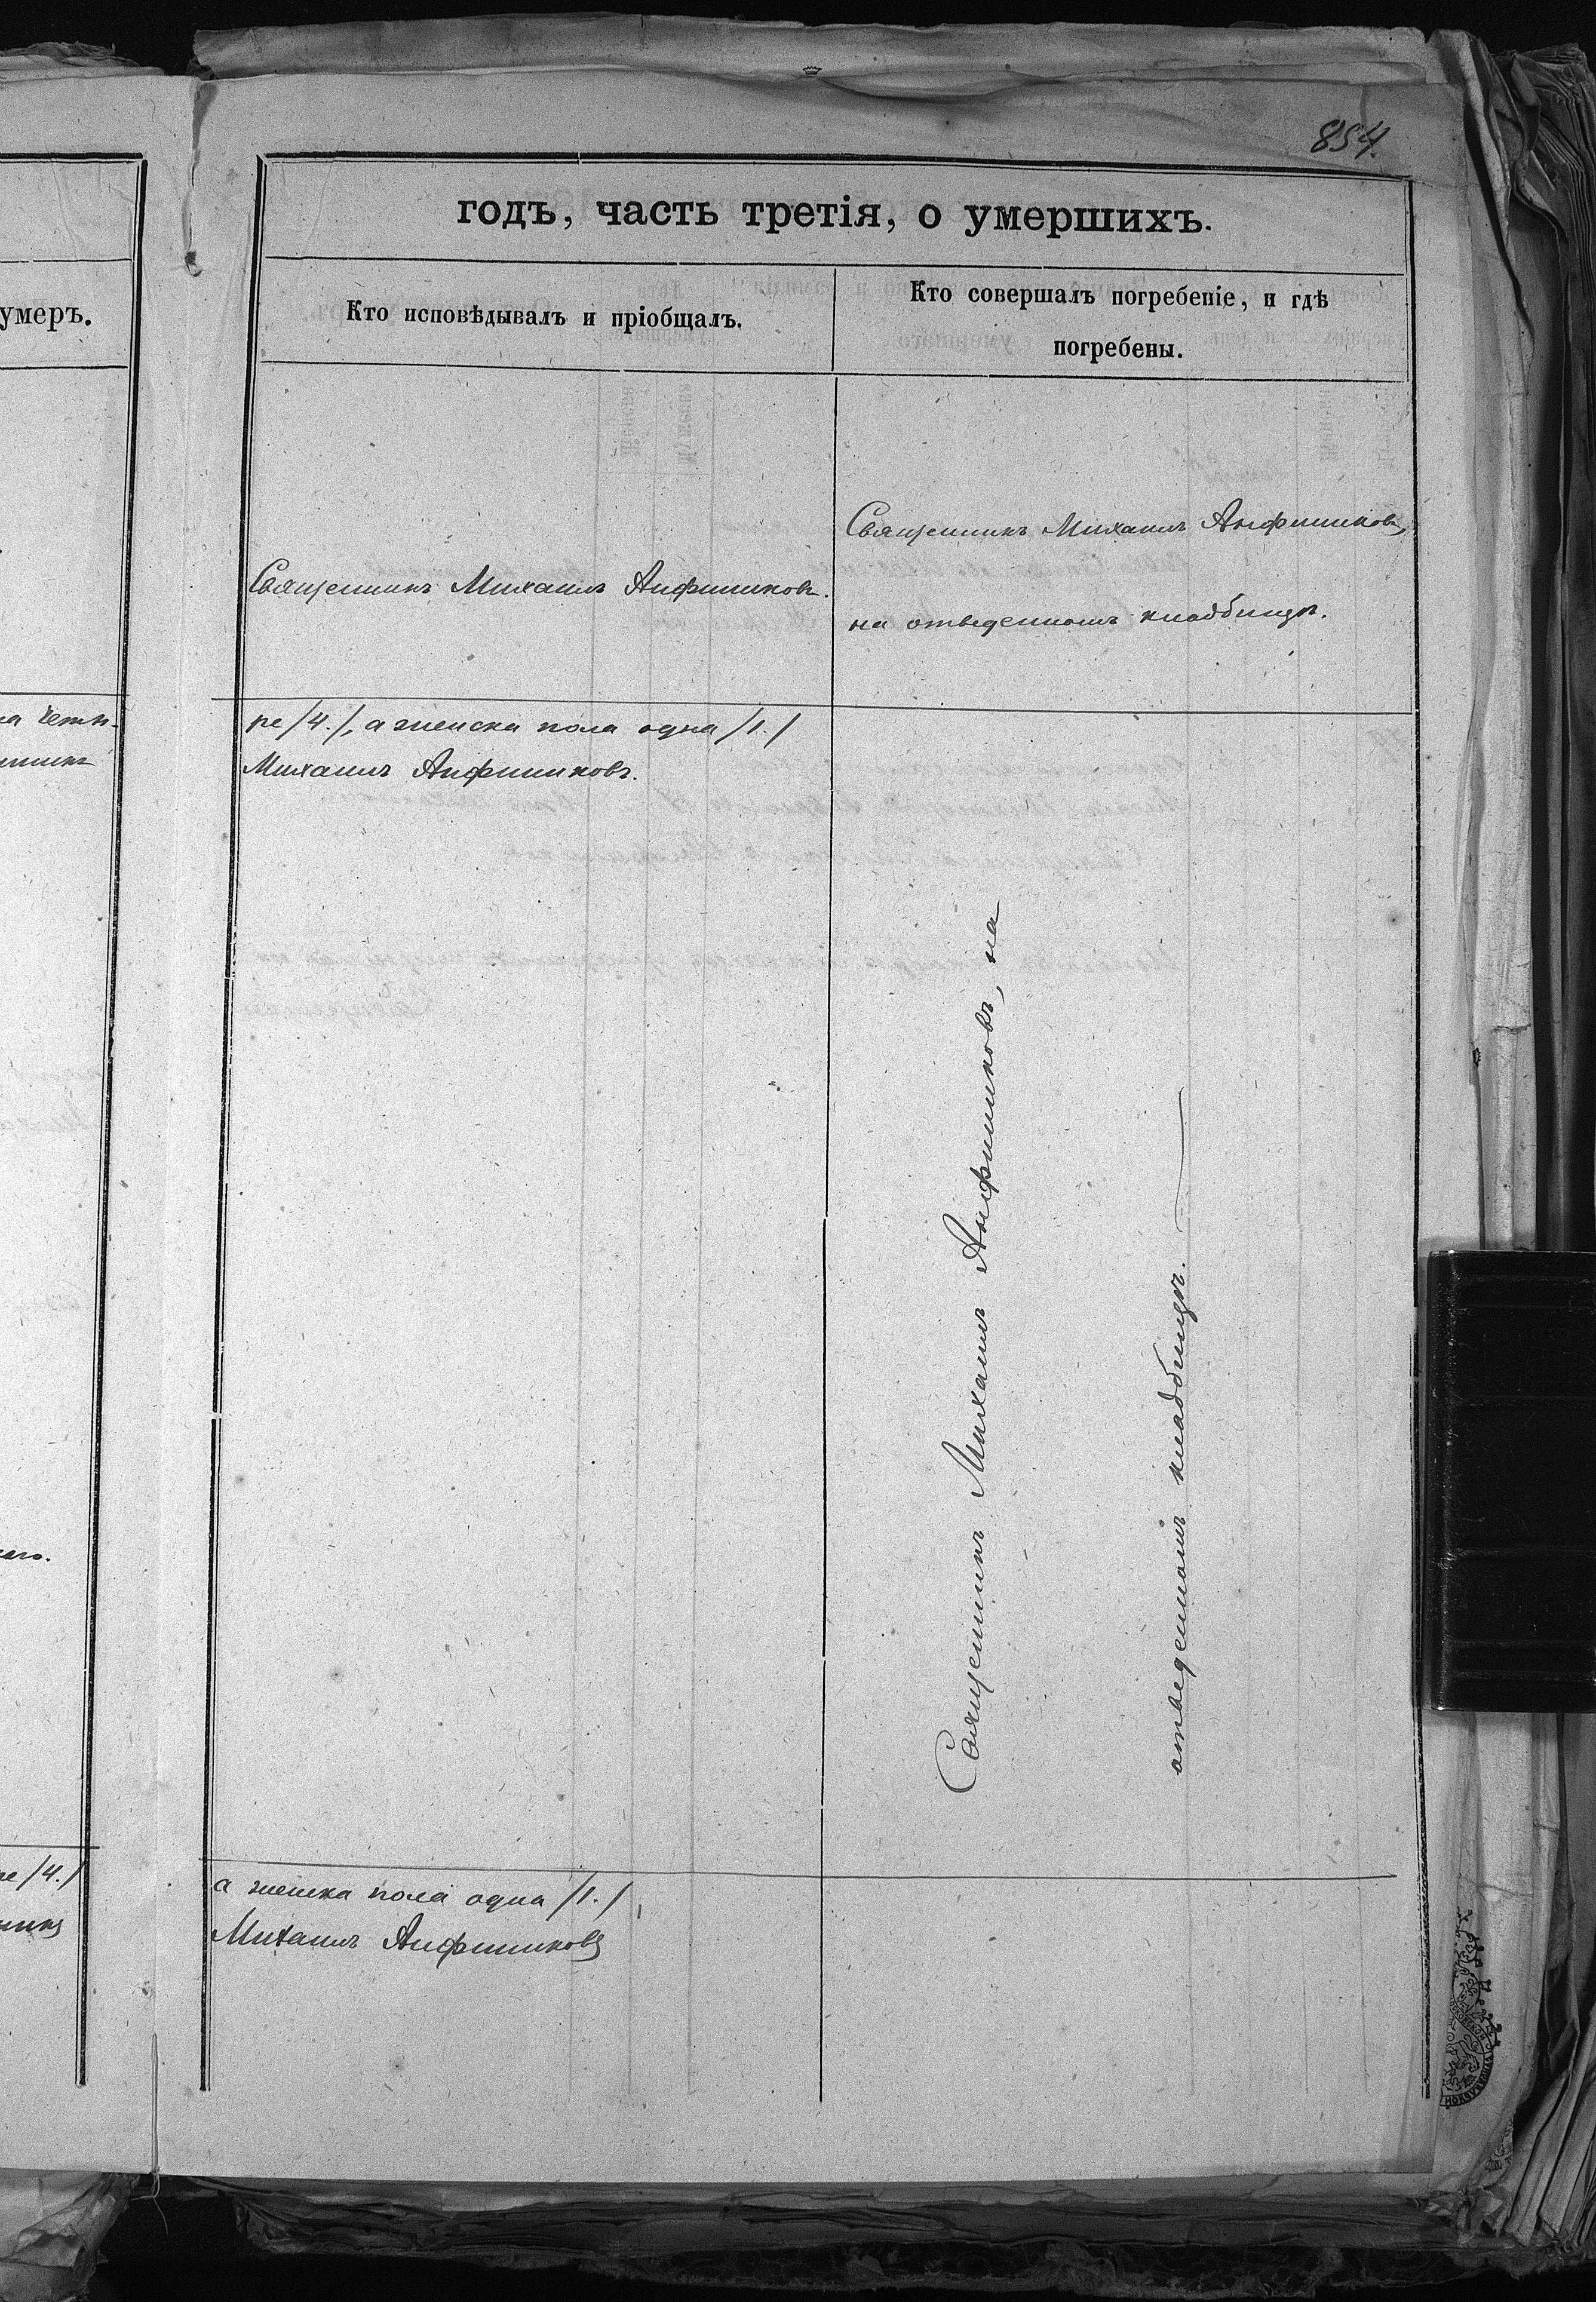 854.
годъ, часть третія, о умершихъ.
умеръ.
Кто исповѣдывалъ и пріобщалъ.
Кто совершалъ погребеніе, и гдѣ
погребены.
Священникъ Михаилъ Анфиниковъ.
Священникъ Михаилъ Анфиниковъ,
на отведенномъ кладбищѣ.
ре /4./, а женска пола одна /1./
Михаилъ Анфиниковъ.
Священникъ Михаилъ Анфиниковъ, на
отведенномъ кладбищѣ.
ре /4./
а женска пола одна /1./
Михаилъ Анфиниковъ